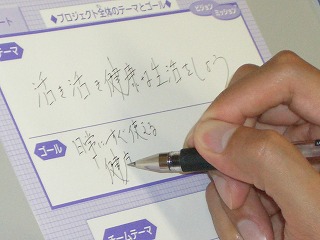 ート
◆プロジェクト全体のテーマとゴール◆
ビジョン
ミッション
テーマ
活き活き健康な生活をしよう
ゴール
日常にすぐ使える
健康
チームテーマ